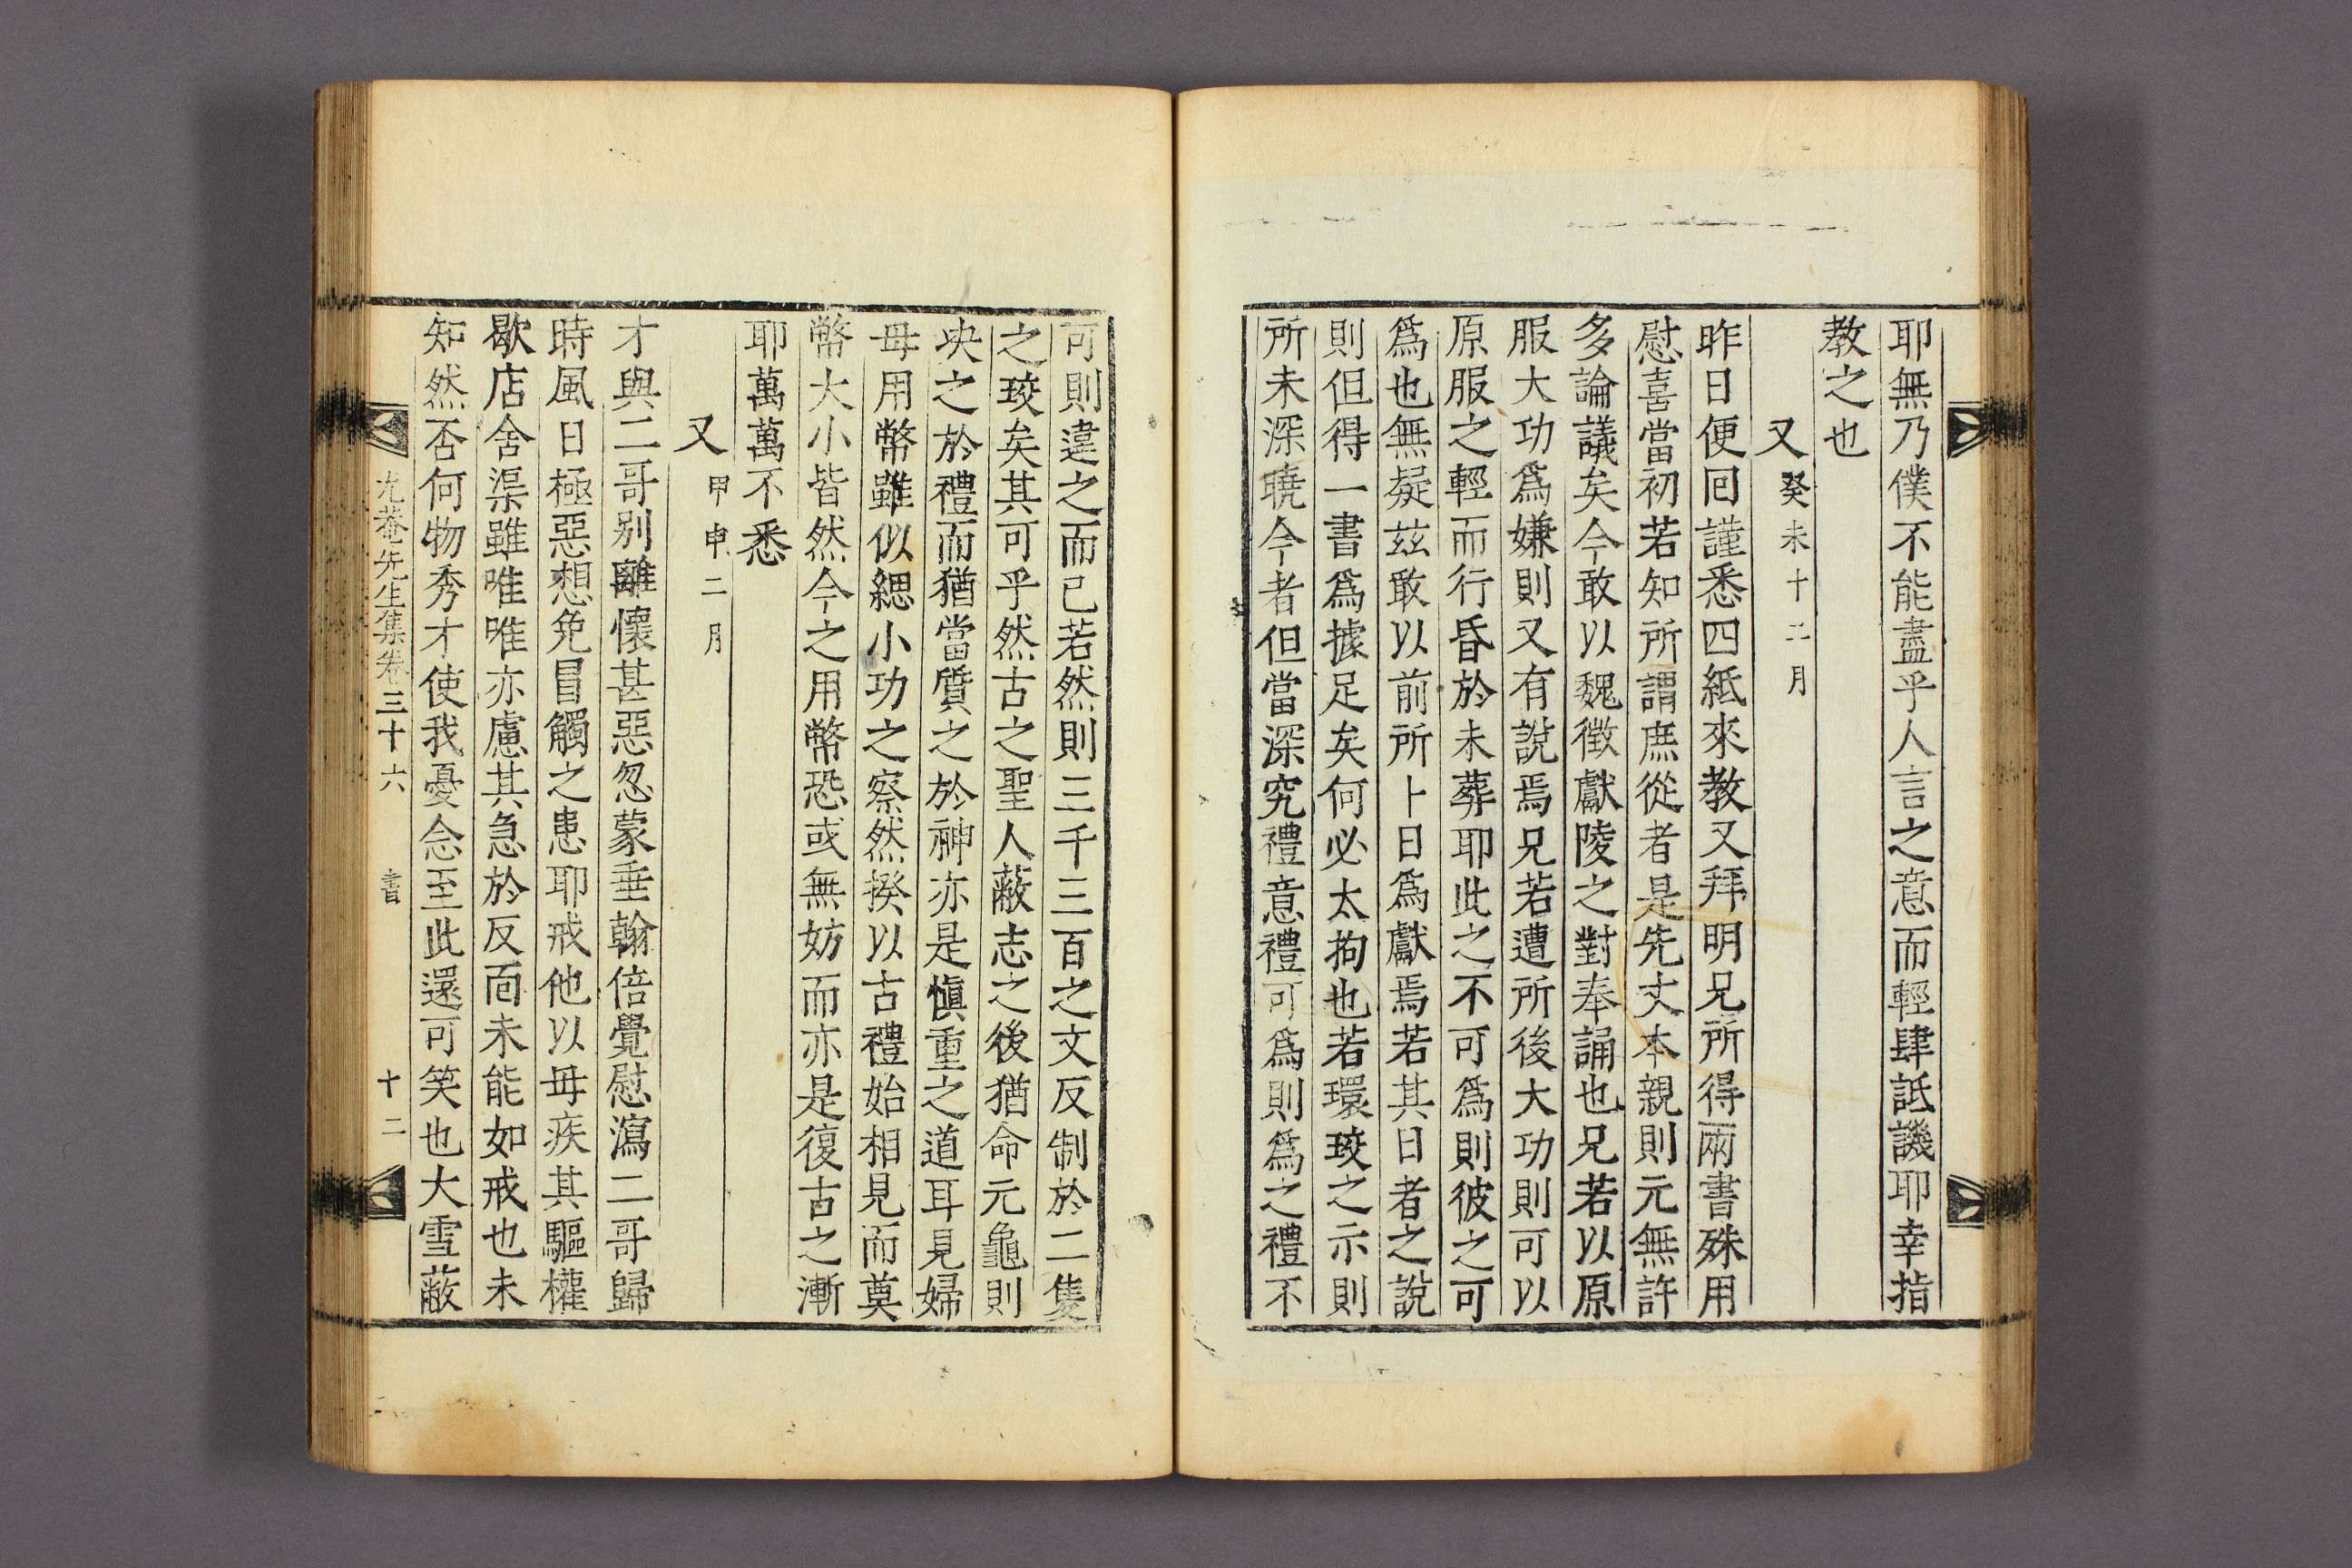 耶無乃僕不能盡乎人言之意而輕肆詆譏耶幸指
教之也
又癸未十二月
昨日便回謹悉四紙來教又拜明兄所得兩書殊用
慰喜當初若知所謂庶從者是先丈本親則元無許
多論議矣今敢以魏徵獻陵之對奉誦也兄若以原
服大功爲嫌則又有說焉兄若遭所後大功則可以
原服之輕而行昏於未葬耶此之不可爲則彼之可
爲也無疑玆敢以前所卜日爲獻焉若其日者之說
則但得一書爲據足矣何必太拘也若環珓之示則
所未深曉今者但當深究禮意禮可爲則爲之禮不
可則違之而已若然則三千三百之文反制於二隻
之珓矣其可乎然古之聖人蔽志之後猶命元龜則
决之於禮而猶當質之於神亦是愼重之道耳見婦
毋用幣雖似緦小功之察然揆以古禮始相見而奠
幣大小皆然今之用幣恐或無妨而亦是復古之漸
耶萬萬不悉
又甲申二月
才與二哥別離懷甚惡忽蒙垂翰倍覺慰瀉二哥歸
時風日極惡想免冒觸之患耶戒他以毋疾其驅權
歇店舍渠雖唯唯亦慮其急於反面未能如戒也未
知然否何物秀才使我憂念至此還可笑也大雪蔽
尤菴先生集卷三十六 書 十二